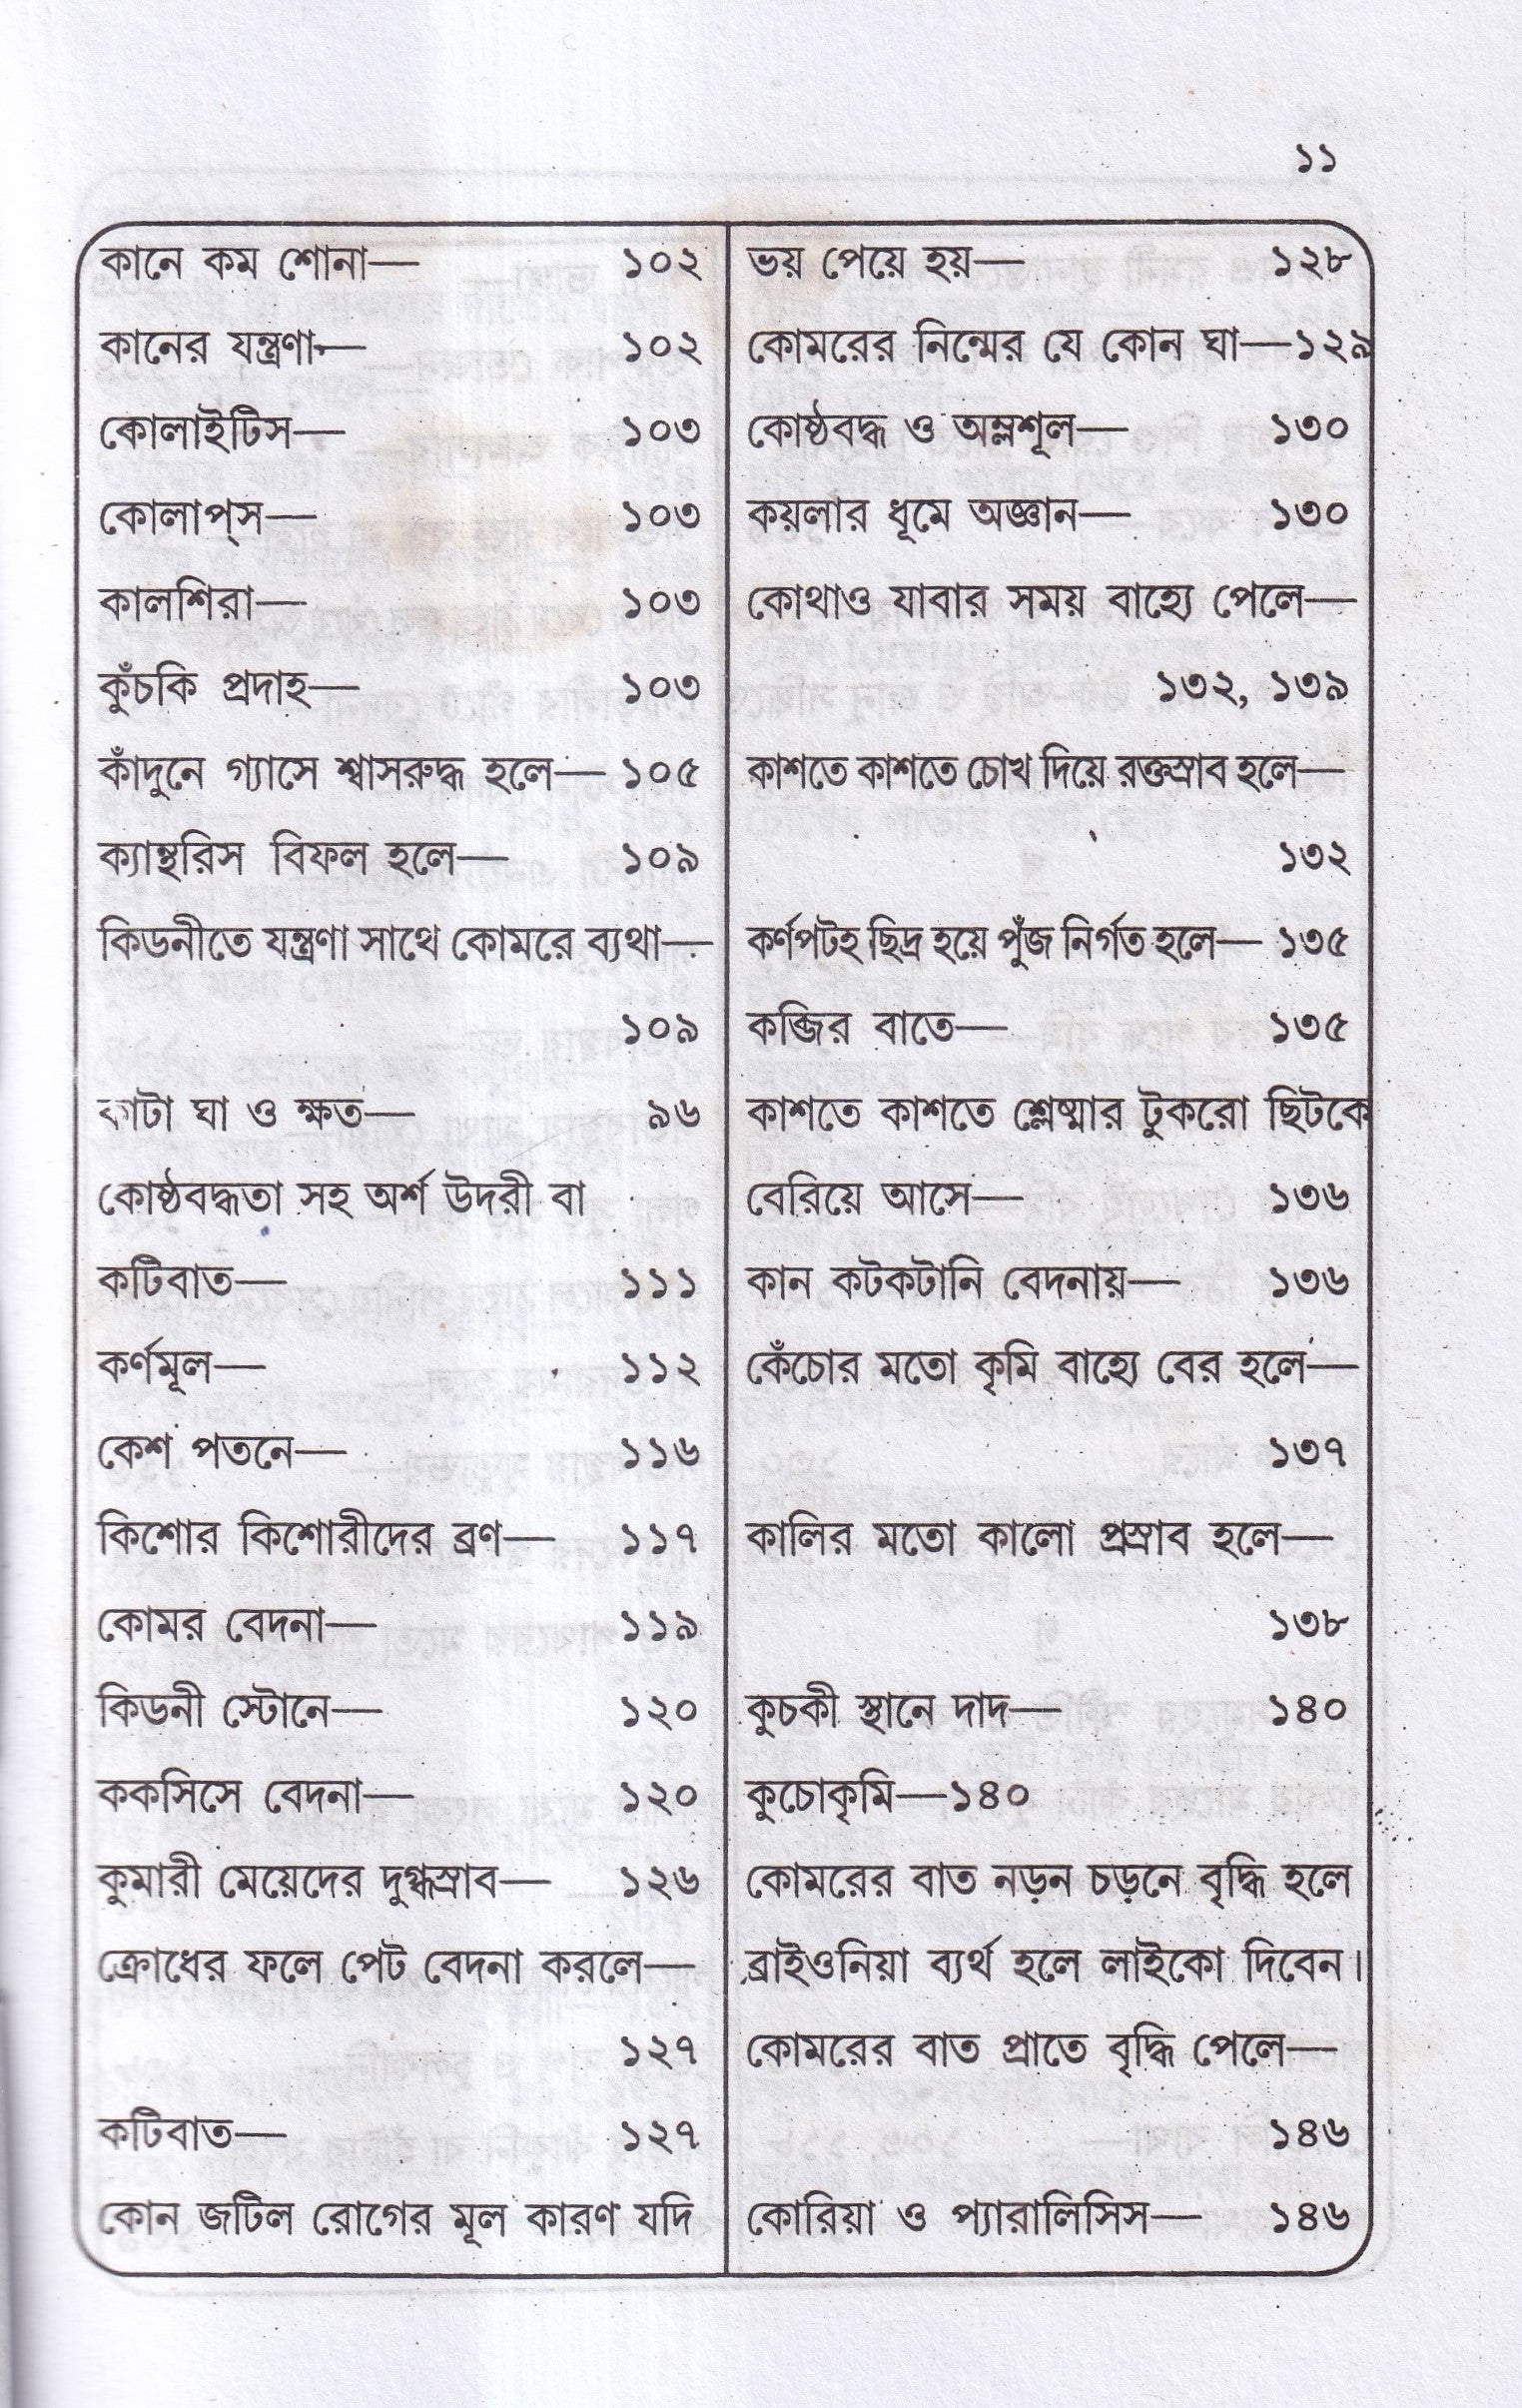 ১১
কানে কম শোনা— ১০২
কানের যন্ত্রণা— ১০২
কোলাইটিস— ১০৩
কোলাপ্‌স— ১০৩
কালশিরা— ১০৩
কুঁচকি প্রদাহ— ১০৩
কাঁদুনে গ্যাসে শ্বাসরুদ্ধ হলে— ১০৫
ক্যান্থরিস বিফল হলে— ১০৯
কিডনীতে যন্ত্রণা সাথে কোমরে ব্যথা—
১০৯
কাটা ঘা ও ক্ষত— ৯৬
কোষ্ঠবদ্ধতা সহ অর্শ উদরী বা
কটিবাত— ১১১
কর্ণমূল— ১১২
কেশ পতনে— ১১৬
কিশোর কিশোরীদের ব্রণ— ১১৭
কোমর বেদনা— ১১৯
কিডনী স্টোনে— ১২০
ককসিসে বেদনা— ১২০
কুমারী মেয়েদের দুগ্ধস্রাব— ১২৬
ক্রোধের ফলে পেট বেদনা করলে—
১২৭
কটিবাত— ১২৭
কোন জটিল রোগের মূল কারণ যদি
ভয় পেয়ে হয়— ১২৮
কোমরের নিন্মের যে কোন ঘা—১২৯
কোষ্ঠবদ্ধ ও অম্লশূল— ১৩০
কয়লার ধূমে অজ্ঞান— ১৩০
কোথাও যাবার সময় বাহ্যে পেলে—
১৩২, ১৩৯
কাশতে কাশতে চোখ দিয়ে রক্তস্রাব হলে—
১৩২
কর্ণপটহ ছিদ্র হয়ে পুঁজ নির্গত হলে— ১৩৫
কব্জির বাতে— ১৩৫
কাশতে কাশতে শ্লেষ্মার টুকরো ছিটকে
বেরিয়ে আসে— ১৩৬
কান কটকটানি বেদনায়— ১৩৬
কেঁচোর মতো কৃমি বাহ্যে বের হলে—
১৩৭
কালির মতো কালো প্রস্রাব হলে—
১৩৮
কুচকী স্থানে দাদ— ১৪০
কুচোকৃমি—১৪০
কোমরের বাত নড়ন চড়নে বৃদ্ধি হলে
ব্রাইওনিয়া ব্যর্থ হলে লাইকো দিবেন।
কোমরের বাত প্রাতে বৃদ্ধি পেলে—
১৪৬
কোরিয়া ও প্যারালিসিস— ১৪৬